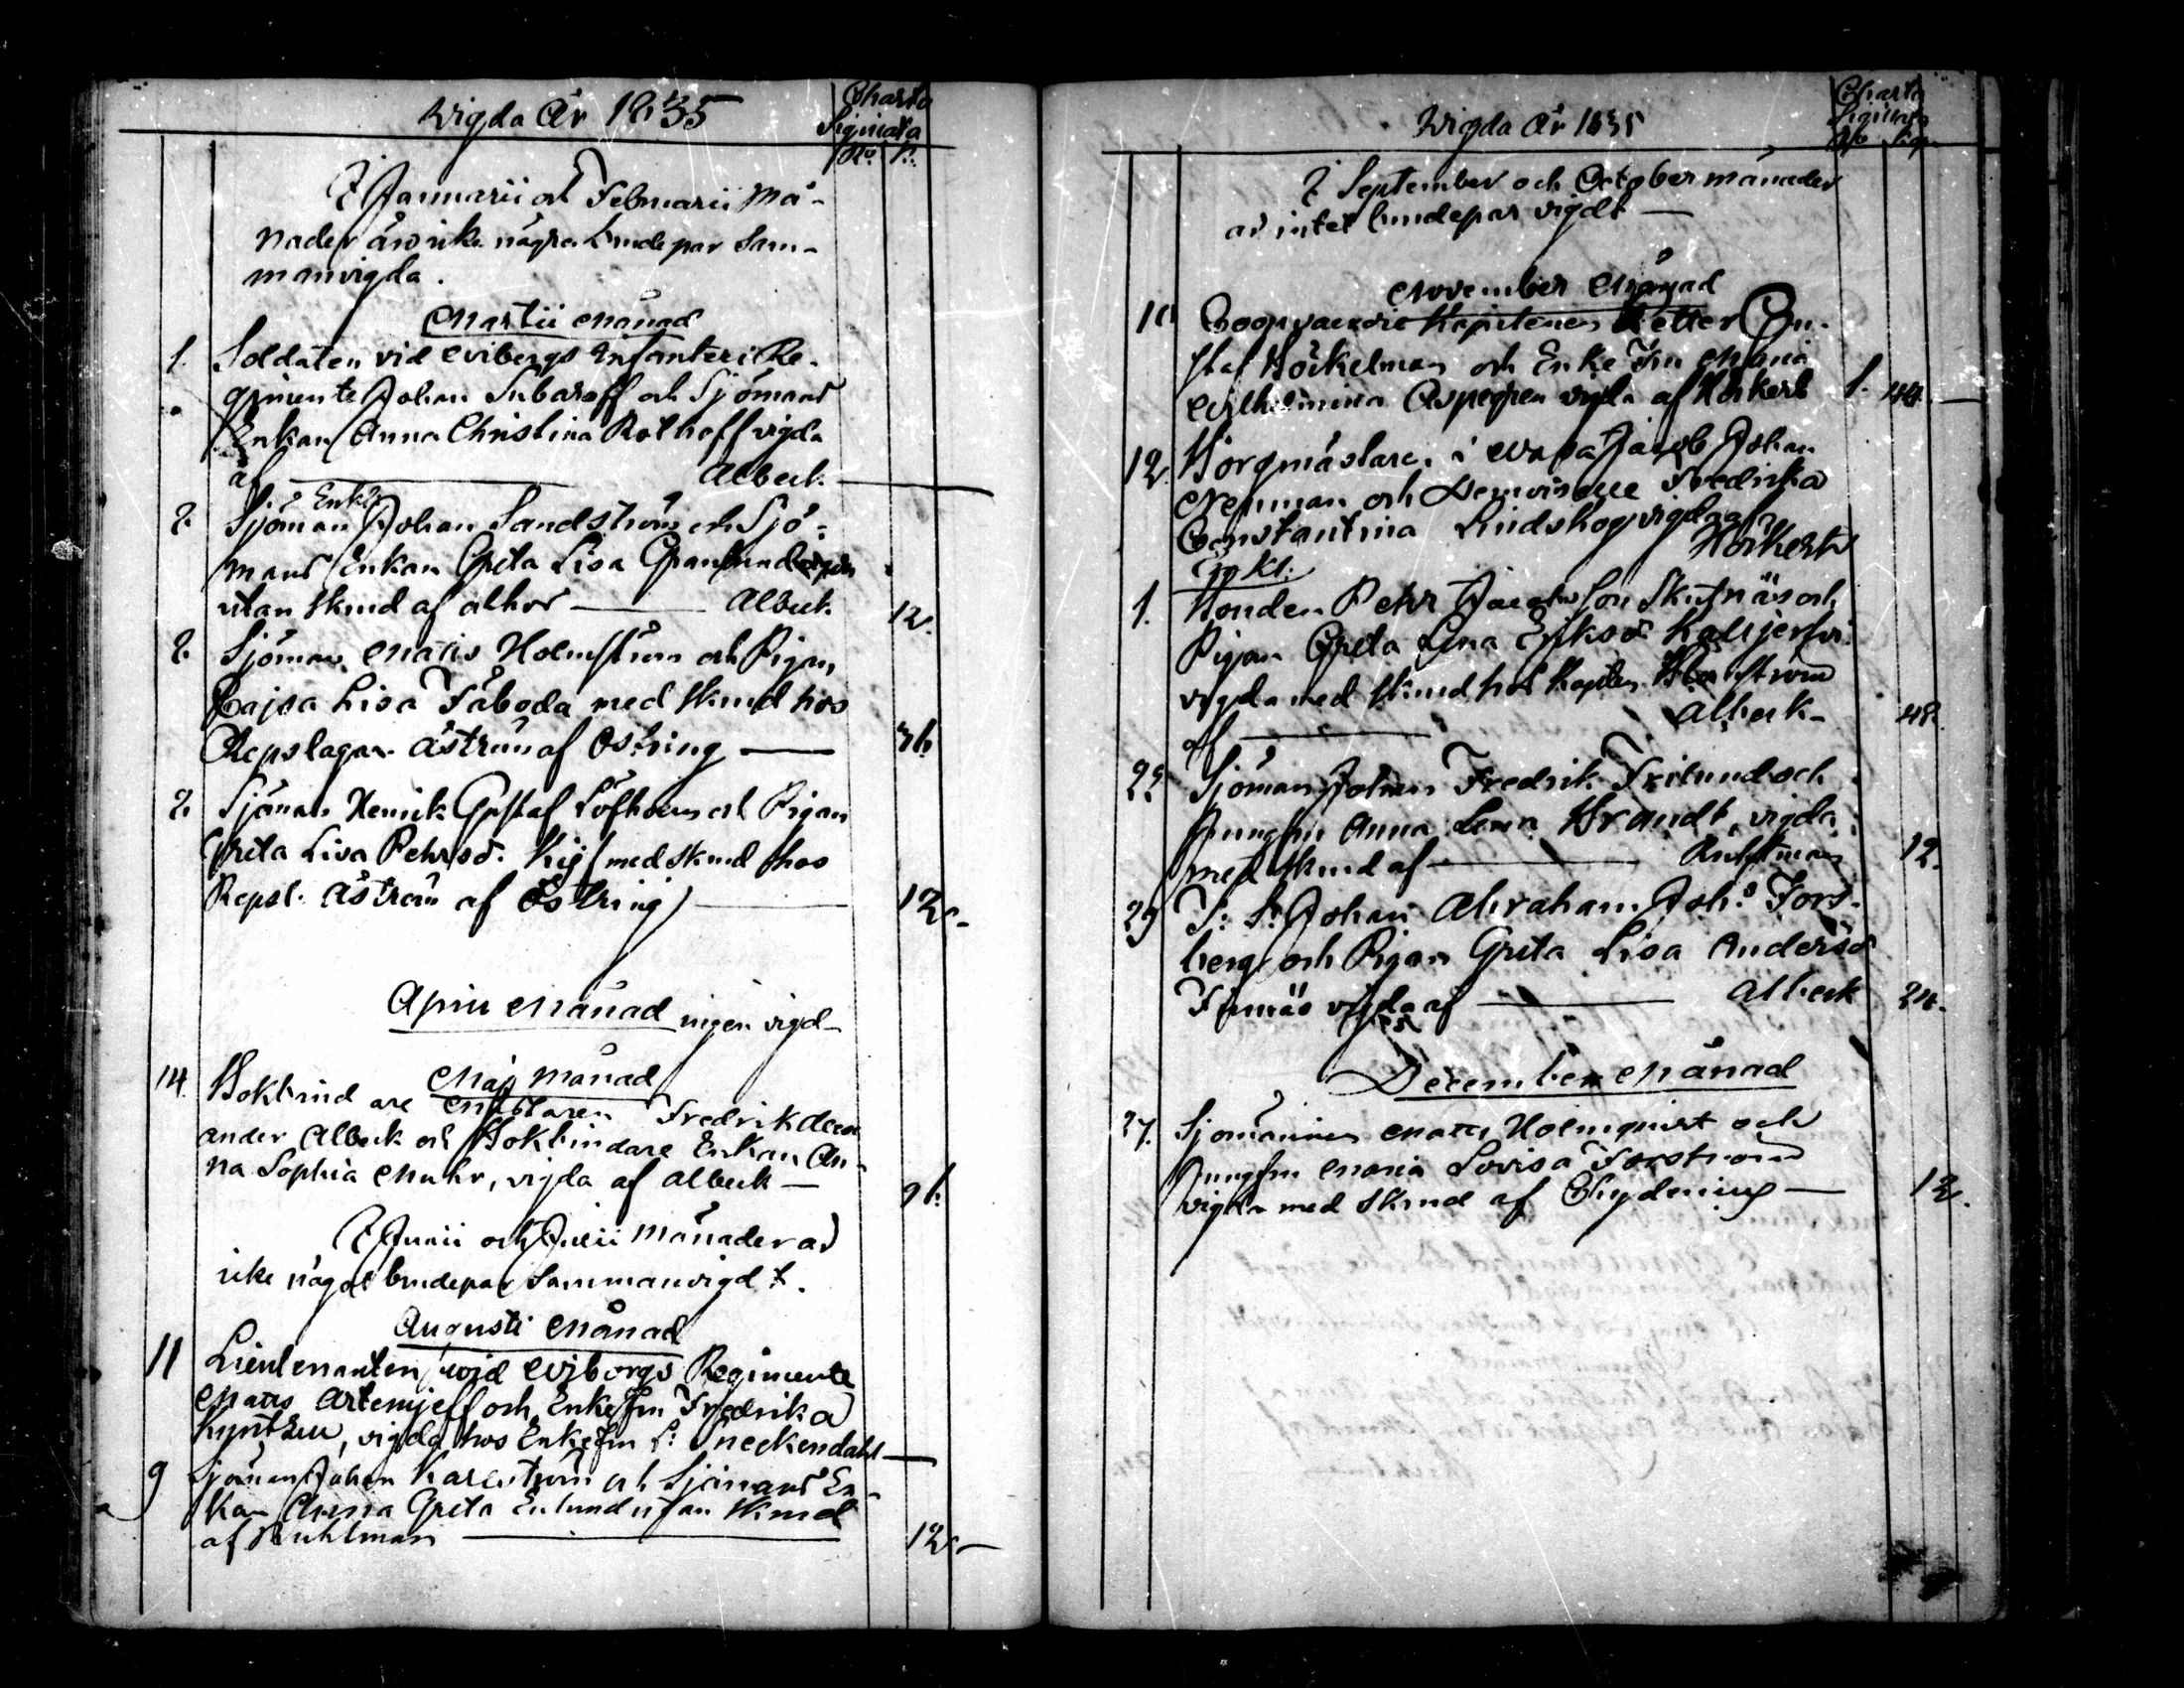 Wigda År 1835
Charta
Sigmata
No. N:
I Januarii och Februarii må-
nader äro icke några brudepar sam-
manvigda.
Martii Månad
1. Soldaten vid Wiborgs Infanterie Re-
gimente Johan Subaroff och Sjömans
Enkan Anna Christina Rothoff vigda
af Albeck
2. Sjöman Enkl. Johan Sandström och Sjö-
mans Enkan Greta Lisa Granlund
utan Skrud af athor Albeck 12.
2. Sjöman Matts Holmström och Pigan
Cajsa Lisa Fäboda med skrud hos
Repslagar Åström af Östring 36.
2. Sjöman Henrik Gustaf Löfholm och Pigan
Greta Lisa Pehrsd. Kij med skrud hos
Repsl. Åström af Östring 12.
April Månad ingen vigd
Maj månad
14. Bokbindare Mästaren Fredrik
ander Albeck och Bokbindare Enkan An-
na Sophia Muhr, vigda af Albeck 96.
I Junii och Julii månader är
icke något brudepar Sammanvigdt.
Augusti Månad
11 Lieutenanten wid Wiborgs Regimente
Matts Artemjeff och Enkefru Fredrika
vigda hos Enkefru L: Sneckendahl
9 Sjöman Johan Karlström och Sjömans En-
kan Anna Greta Enlund utan skrud
af Ruhlman 12
Wigda År 1835
Charta
Sigmata
No Sig.
I September och October månader
är intet brudepar vigdt
November Månad
10 Coopvaerdie Kapitenen Petter Gu-
staf Böckelman och Enke Fru Maria
Wilhelmina Aspegren vigda af Hörkert 1. 44
12. Borgmästare i Wasa Jacob Johan
Neuman och Demoiselle Fredrika
Constantina Lindskog vigda af
Hörkert
1. Bonden Pehr Jacobsson Skutnäs och
Pigan Greta Lena Eriksd. Kalljerfvi
vigda med skrud hos Kapten
af Albeck 48.
22 Sjöman Johan Fredrik Frilund och
Jungfru Anna Lena Brandt, vigda
med skrud af Ruhlman 12.
29 S: S: Johan Abraham Joh:s Fors-
berg och Pigan Greta Lisa Andersd
Finnäs vigda af Albeck 24.
December Månad
27. Sjömannen Matts Holmqvist och
Jungfru Maria Lovisa Forström
vigda med Skrud af Chydenius 12.